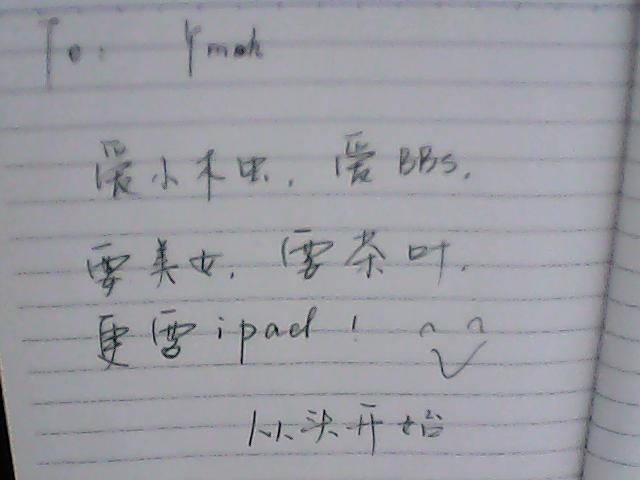 To: Ymoh
爱小木虫，爱BBS，
要美女，要茶叶，
更要ipad！
从头开始